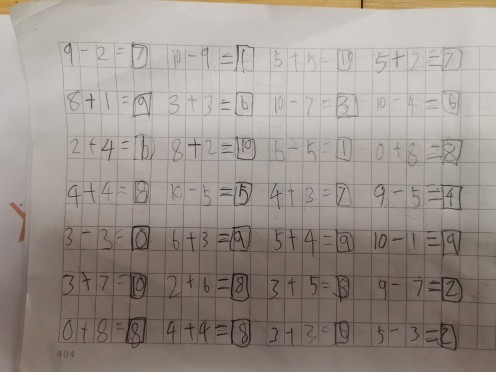 9-2=7 10-9=1 5+5=10 5+2=7
8+1=9 3+3=6 10-7=3 10-4=6
2+4=6 8+2=10 6-5=1 0+8=8
4+4=8 10-5=5 4+3=7 9-5=4
3-3=0 6+3=9 5+4=9 10-1=9
3+7=10 2+6=8 3+5=8 9-7=2
0+8=8 4+4=8 3+3=6 5-3=2
404